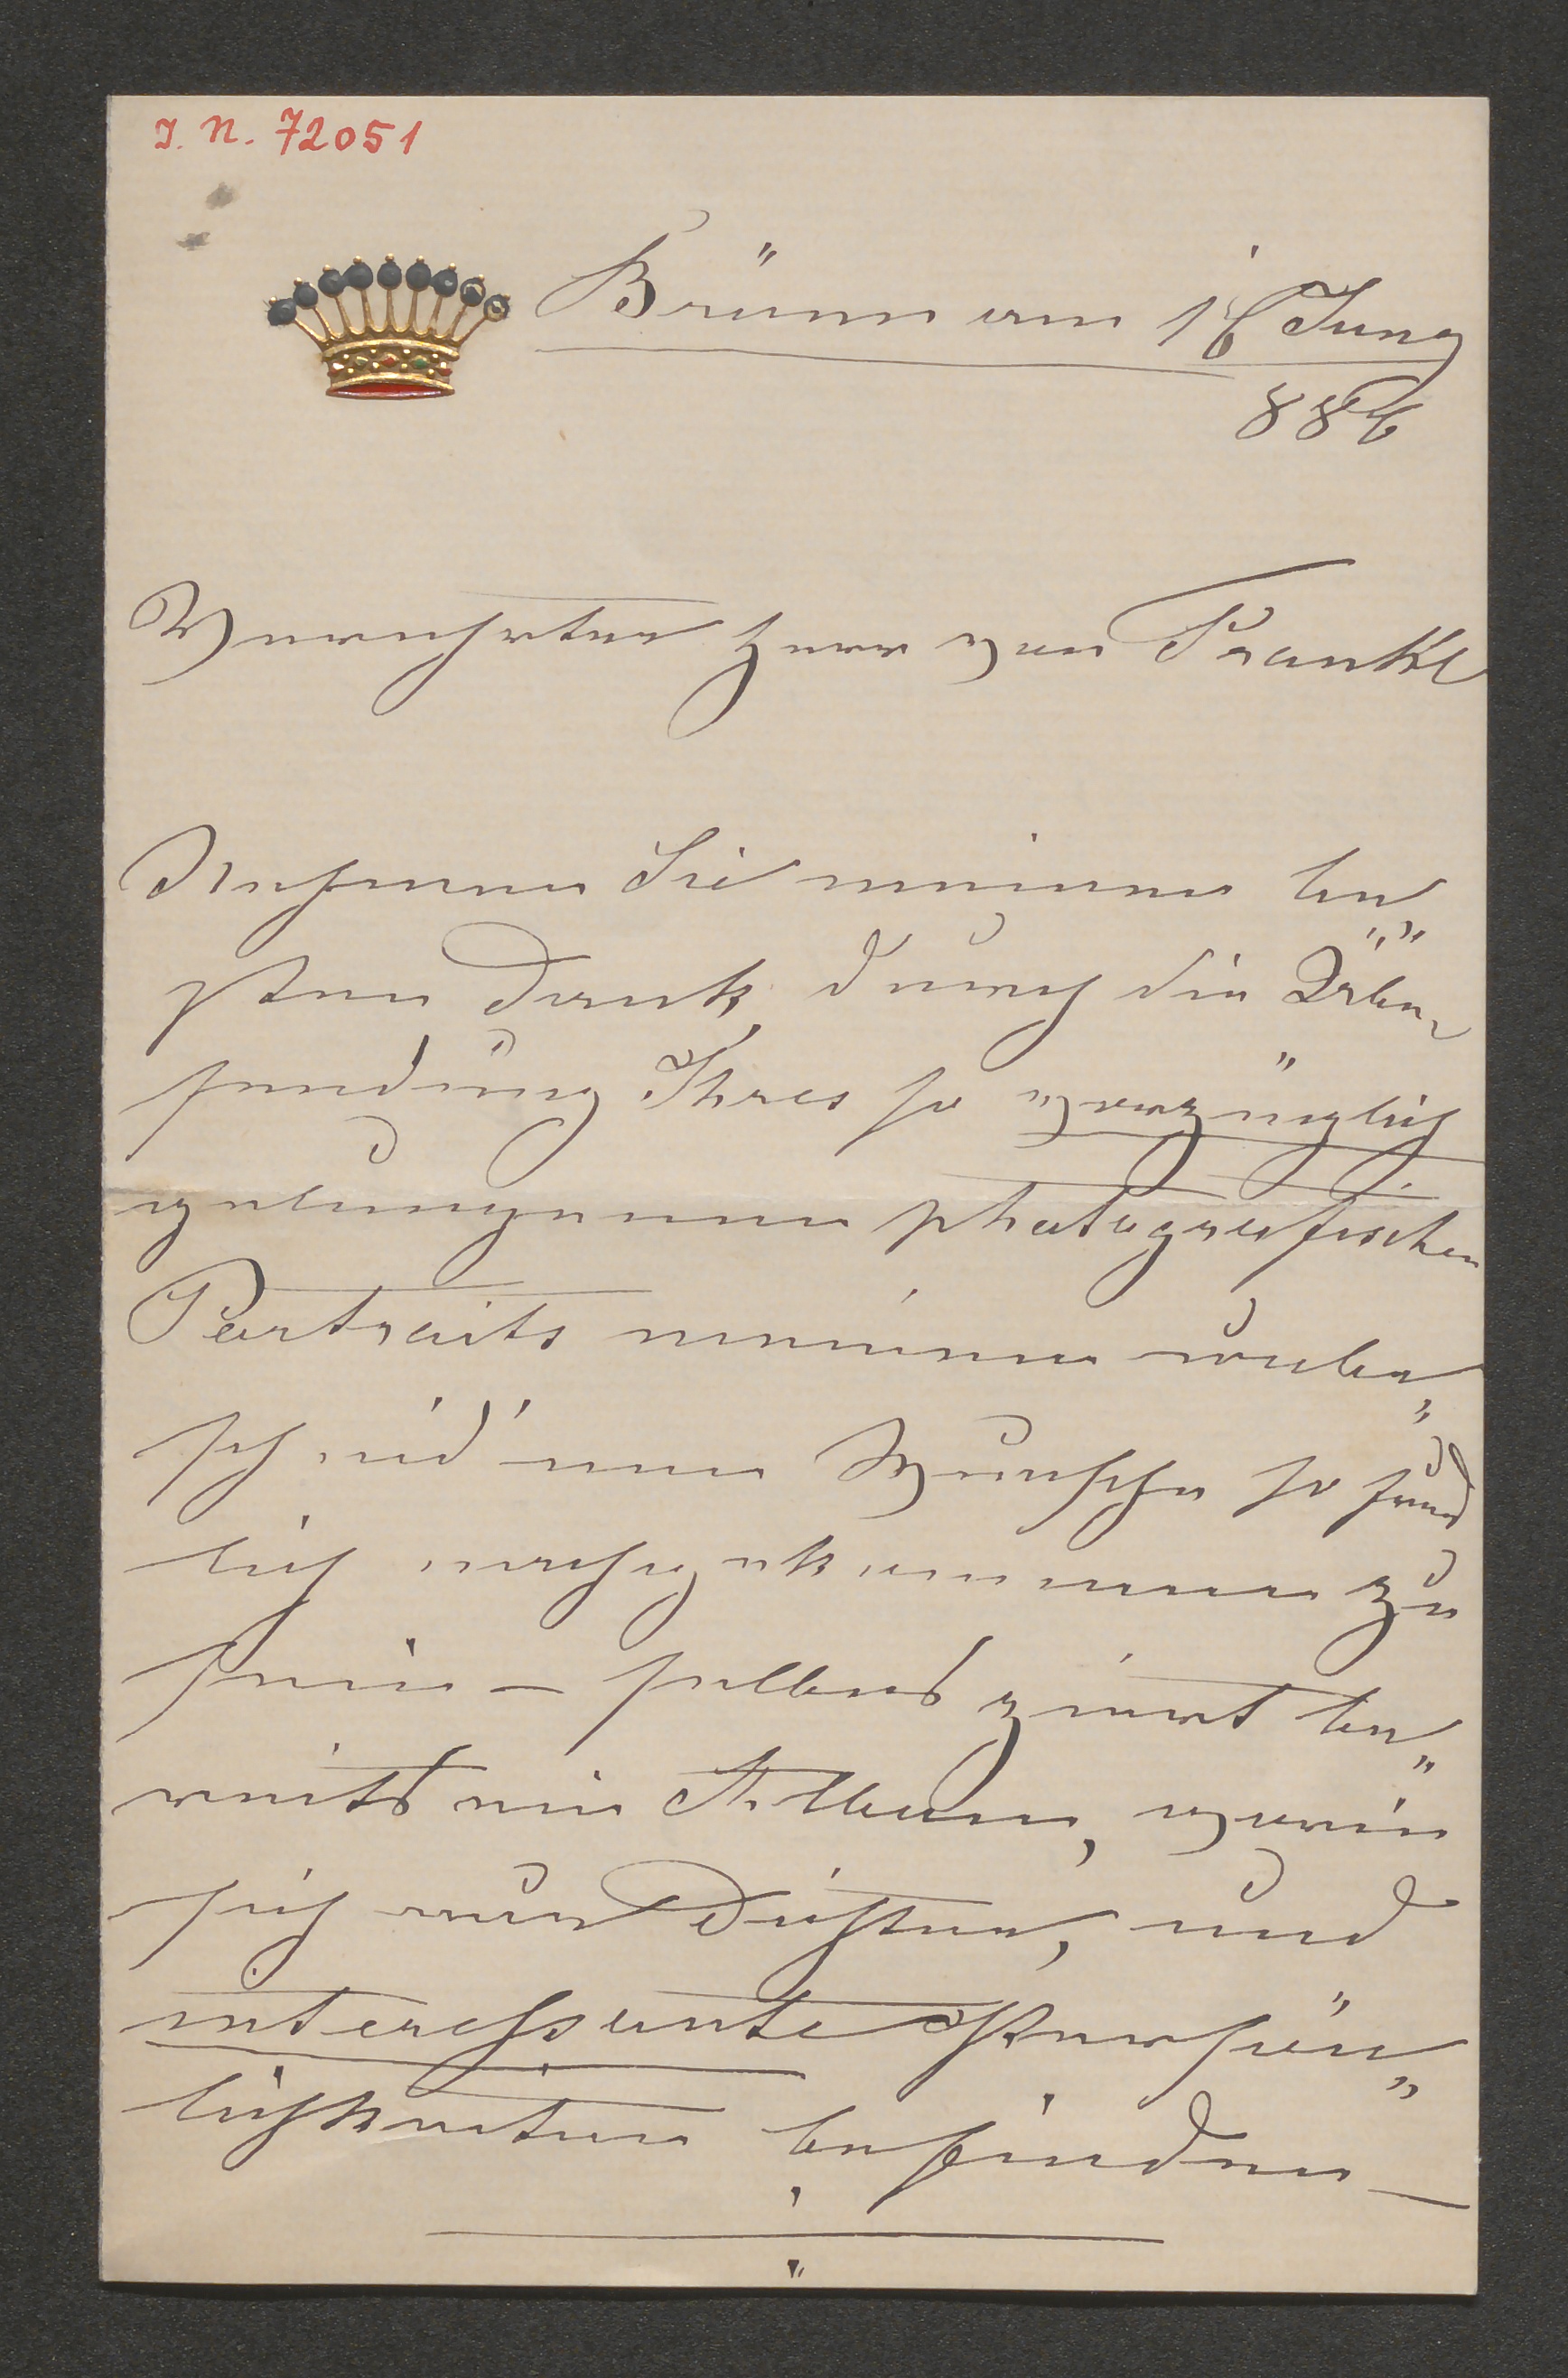 I. N. 72051
Brünn am 16 Juny
886
Verehrter Herr von Frankl
Nehmen Sie meinen be„
sten Dank, durch die Über„
sendung Ihres so vorzüglich
gelungenen photografischen
Portraits meinen
Wunsche so freund
lich nachgekommen zu
sein – selbes ziert be„
reits ein Album, worin
sich nur Dichter, und
interessante Persön„
lichkeiten befinden –